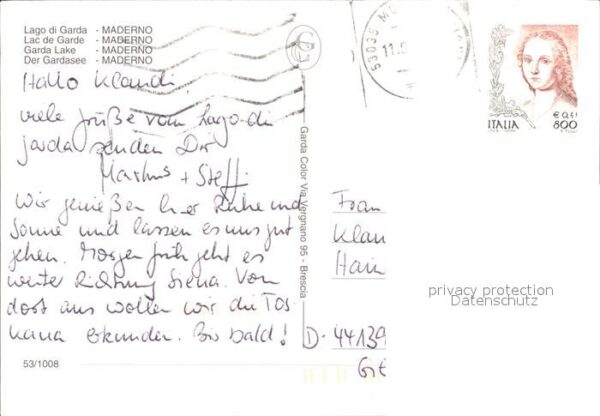 Lago di Garda - MADERNO
Lac de Garde - MADERNO
Garda Lake - MADERNO
Der Gardasee - MADERNO
Hallo Klaudi,
viele Grüße vom Lago-di
garda senden Dir
Markus + Steffi
Wir genießen hier Ruhe und
Sonne und lassen es uns gut
gehen. Morgen früh geht es
weiter Richtung Siena. Von
dort aus wollen wir die Tos
kana erkunden. Bis bald!
53/1008
Garda Color Via Vergnano 95 - Brescia
53036
11.
ITALIA
€ 0,41
800
Frau
Klau
Hain
D-44139
privacy protection
Datenschutz